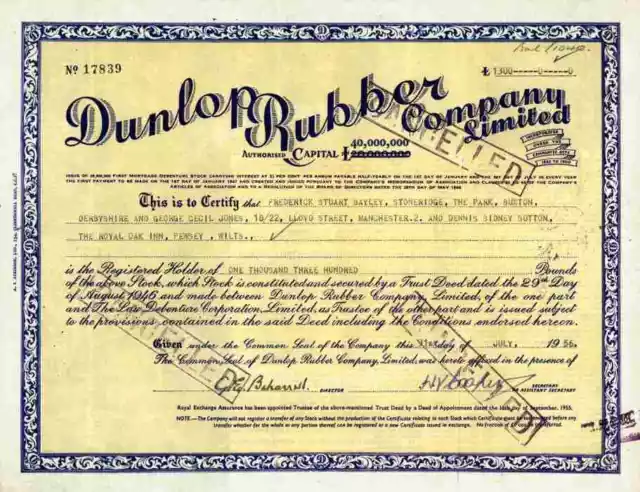 Nº 17839
£ 1300-----0-----0
Dunlop Rubber Company Limited
INCORPORATED UNDER THE COMPANIES ACTS
AUTHORISED CAPITAL £40,000,000
ISSUE OF FIRST MORTGAGE DEBENTURE STOCK CARRYING INTEREST AT PER CENT PER ANNUM PAYABLE HALF-YEARLY ON THE 1ST DAY OF JANUARY AND THE 1ST DAY OF JULY IN EVERY YEAR
THE FIRST PAYMENT TO BE MADE ON THE 1ST DAY OF JANUARY 1947 AND CREATED AND ISSUED PURSUANT TO THE COMPANY'S MEMORANDUM OF ASSOCIATION AND OF THE COMPANY'S
ARTICLES OF ASSOCIATION AND TO A RESOLUTION OF THE BOARD OF DIRECTORS DATED THE DAY OF 1946
This is to Certify that FREDERICK STUART BAYLEY, STONERIDGE, THE PARK, BUXTON,
DERBYSHIRE AND GEORGE CECIL JONES, 18/22, LLOYD STREET, MANCHESTER.2. AND DENNIS SIDNEY SUTTON,
THE ROYAL OAK INN, PEWSEY, WILTS.,
is the Registered Holder of ONE THOUSAND THREE HUNDRED Pounds
of the above Stock, which Stock is constituted and secured by a Trust Deed dated the 29th Day
of August 1946 and made between Dunlop Rubber Company, Limited, of the one part
and The Law Debenture Corporation, Limited, as Trustee of the other part and is issued subject
to the provisions contained in the said Deed including the Conditions endorsed hereon.
Given under the Common Seal of the Company this 31st day of JULY, 1956.
The Common Seal of Dunlop Rubber Company, Limited, was hereto affixed in the presence of
DIRECTOR
SECRETARY
OR ASSISTANT SECRETARY
Royal Exchange Assurance has been appointed Trustee of the above-mentioned Trust Deed by a Deed of Appointment dated the September, 1955.
NOTE.—The Company will not register a transfer of any Stock without the production of the Certificate relating to such Stock which Certificate must be surrendered before any
transfer whether for the whole or any portion thereof can be registered or a new Certificate issued in exchange. No fraction of £1 can be transferred.
CANCELLED
CANCELLED
CANCELLED